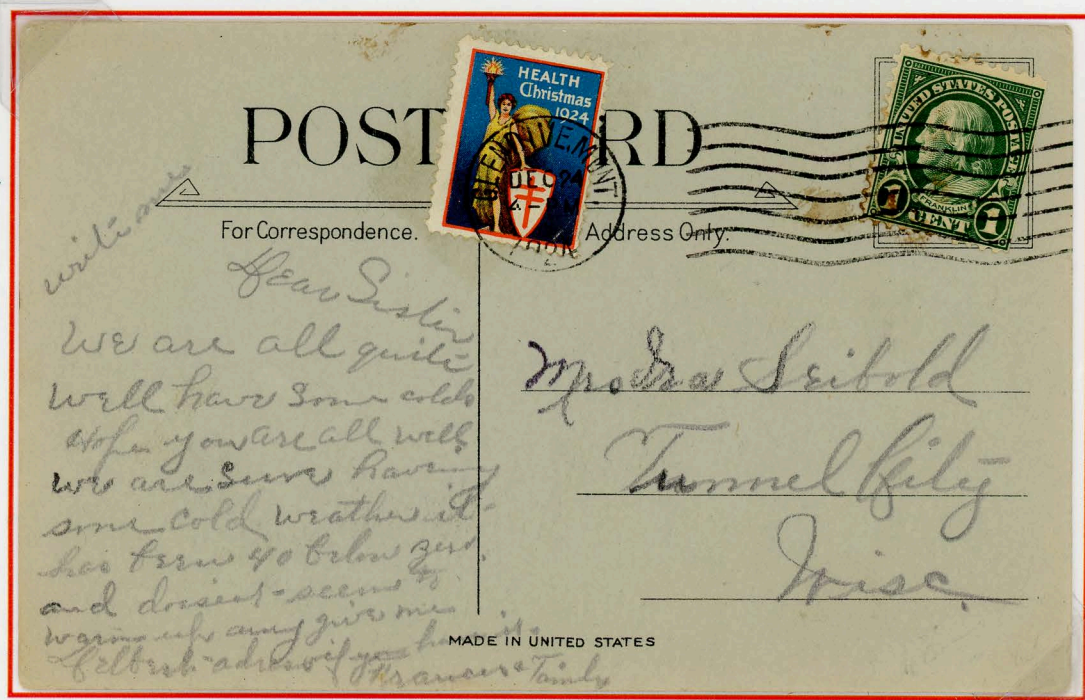 POST CARD
HEALTH
Christmas
1924
GLENDIVE, MONT.
DEC 24
1924
UNITED STATES POSTAGE
FRANKLIN
1 CENT 1
For Correspondence.
Address Only.
write me
Dear Sister
We are all quite
well have some colds
Hope you are all well
we are sure having
some cold weather it
has been 40 below zero.
and doesent seem to
warm up any give me
adress if you have it.
Francis & Family
Mrs Ira Seibold
Tunnel City
Wisc.
MADE IN UNITED STATES